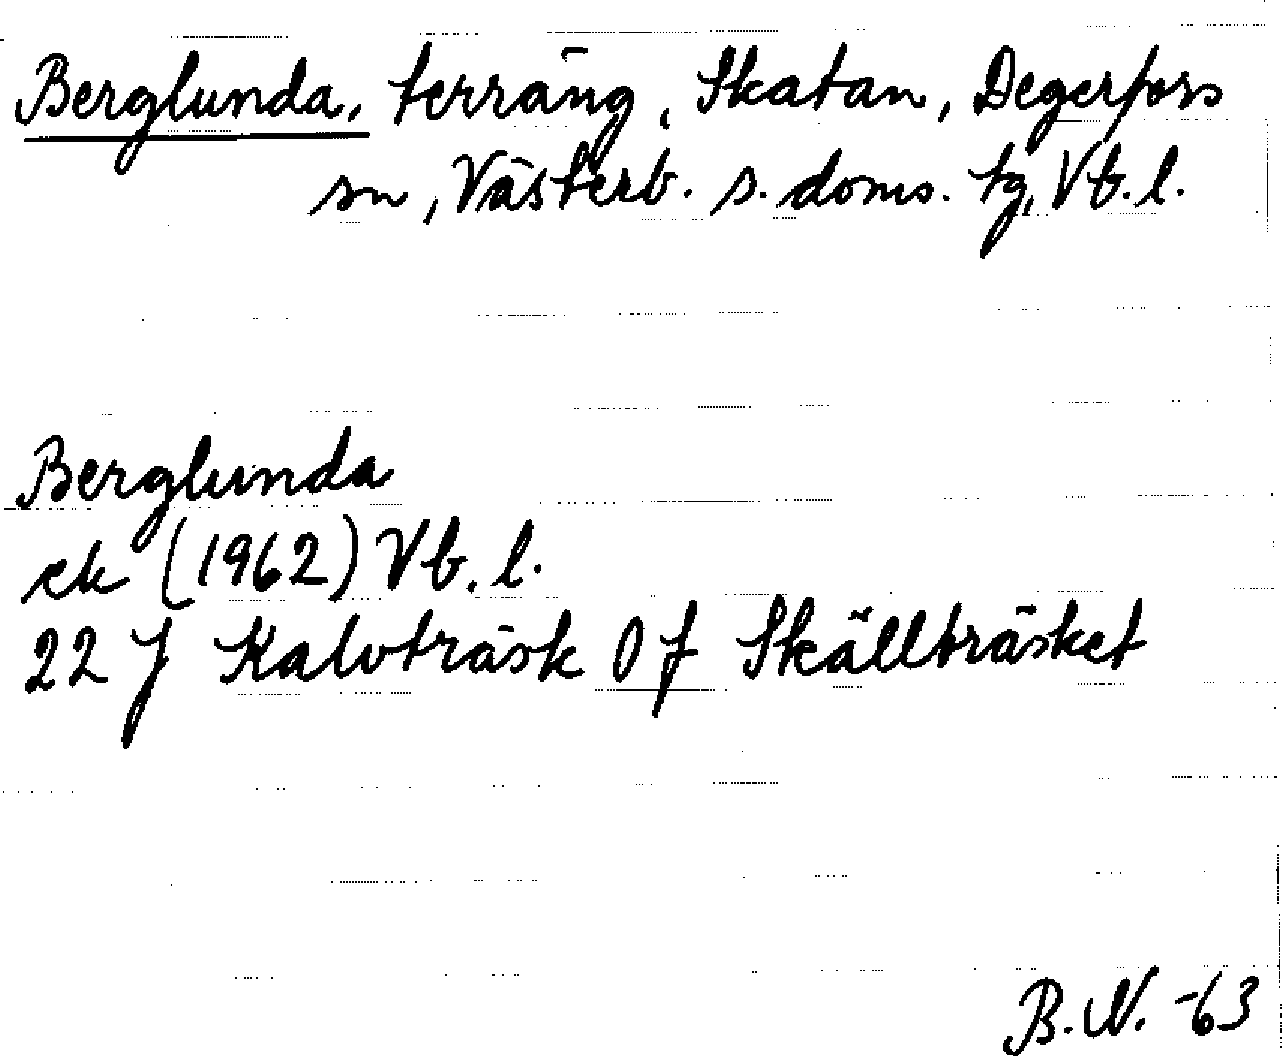 Berglunda, terräng, Skatan, Degerfors
sn, Västerb. s. doms. tg, Vb. l.
Berglunda
ek (1962) Vb. l.
22 J Kalvträsk 0 f Skällträsket
B. N. -63